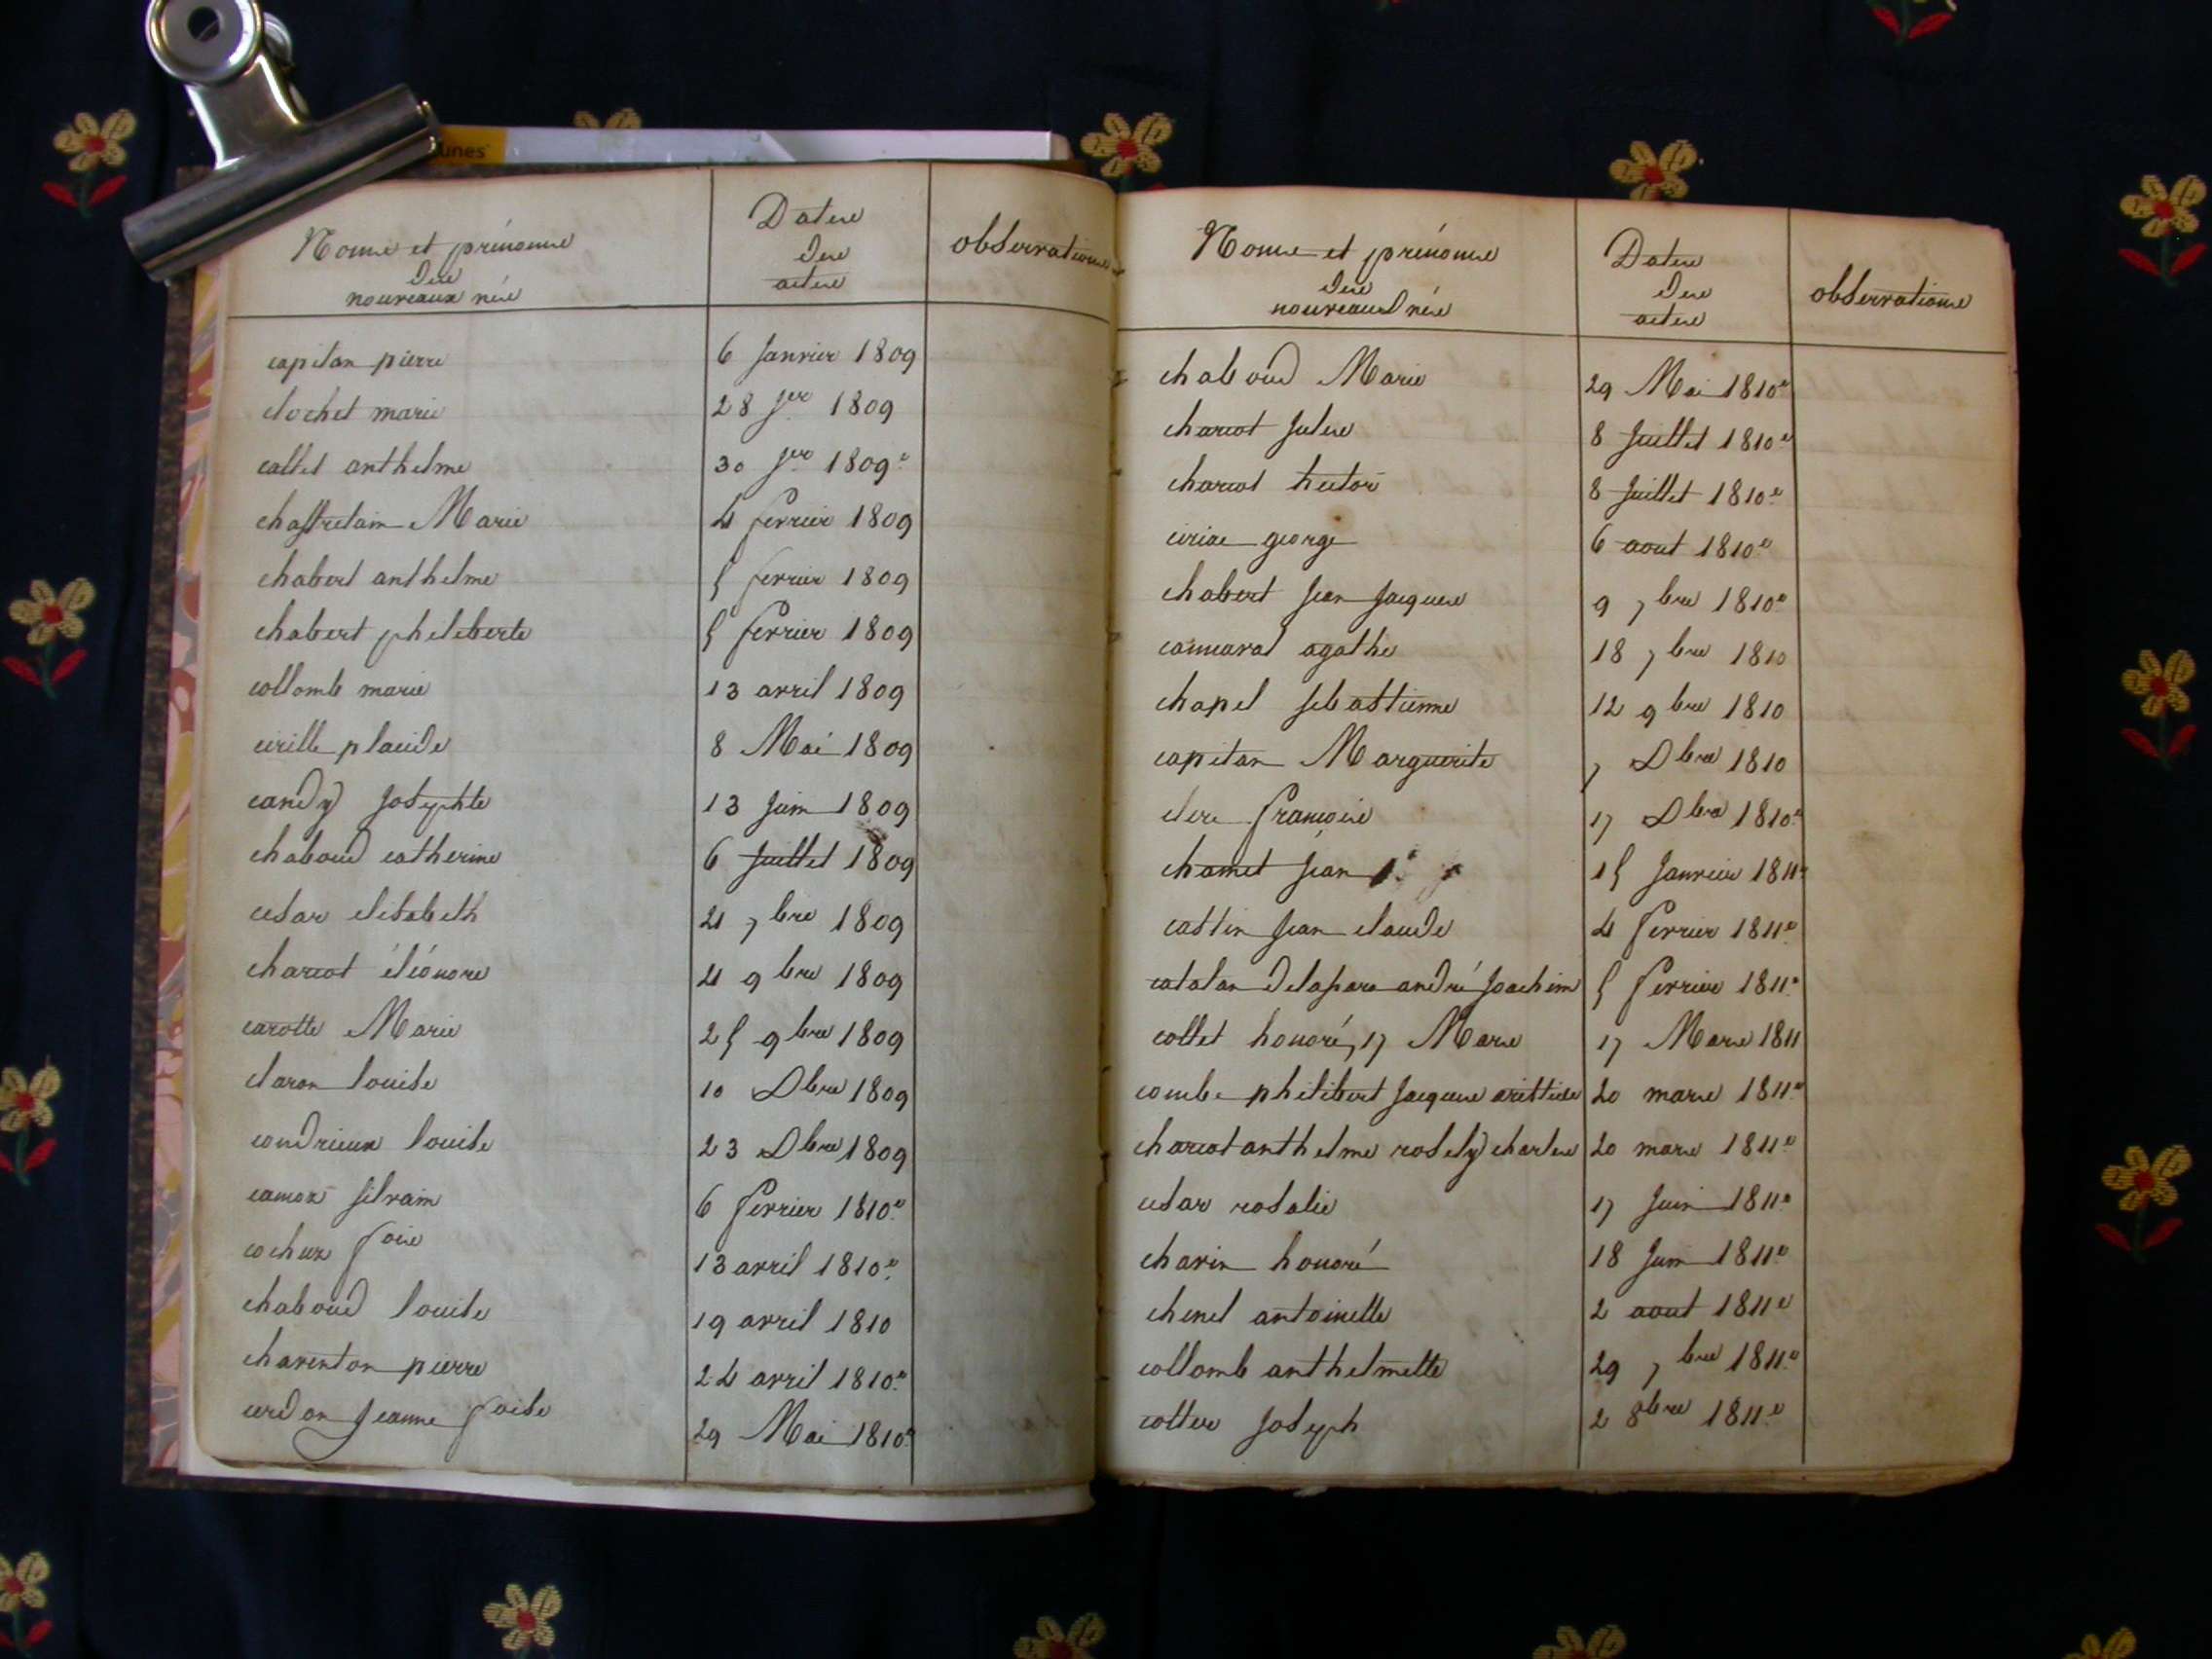 unes
Noms et prénoms
des
nouveaux nés
Dates
des
actes
observations
capitan pierre 6 Janvier 1809
clochet marie 28 Jer 1809
callet anthelme 30 Jer 1809.
chastretain Marie 4 fevrier 1809
chabert anthelme 5 fevrier 1809
chabert pheleberte 5 fevrier 1809
collomb marie 13 avril 1809
cirille placide 8 Mai 1809
candy Josephte 13 Juin 1809
chaboud catherine 6 Juillet 1809
cesar elisabeth 21 7bre 1809
charcot éléonore 21 9bre 1809
carotte Marie 25 9bre 1809
claron louise 10 Dbre 1809
condrieux louise 23 Dbre 1809
camox silvain 6 fevrier 1810.
cochux fois 13 avril 1810.
chaboud louise 19 avril 1810
charenton pierre 24 avril 1810.
cerdon Jeanne foise 29 Mai 1810.
Noms et prénoms
des
nouveaux nés
Dates
des
actes
observations
chaboud Marie 29 Mai 1810.
charcot Jules 8 Juillet 1810.
charcot hector 8 Juillet 1810.
ciriac george 6 aout 1810.
chabert Jean Jacques 9 7bre 1810.
agathe 18 7bre 1810
chapel sebastienne 12 9bre 1810
capitan Marguerite 7 Dbre 1810
clerc françois 17 Dbre 1810.
chamet Jean 15 Janvier 1811.
castin Jean claude 4 fevrier 1811.
catalan andré Joachim 5 fevrier 1811.
collet honoré, 17 Mars 17 Mars 1811
combe philibert Jacques aristide 20 mars 1811.
charcot anthelme rosely charles 20 mars 1811.
cesar rosalie 17 Juin 1811.
charin honoré 18 Juin 1811.
chenel antoinette 2 aout 1811.
collomb anthelmette 29 7bre 1811.
cotter Joseph 2 8bre 1811.